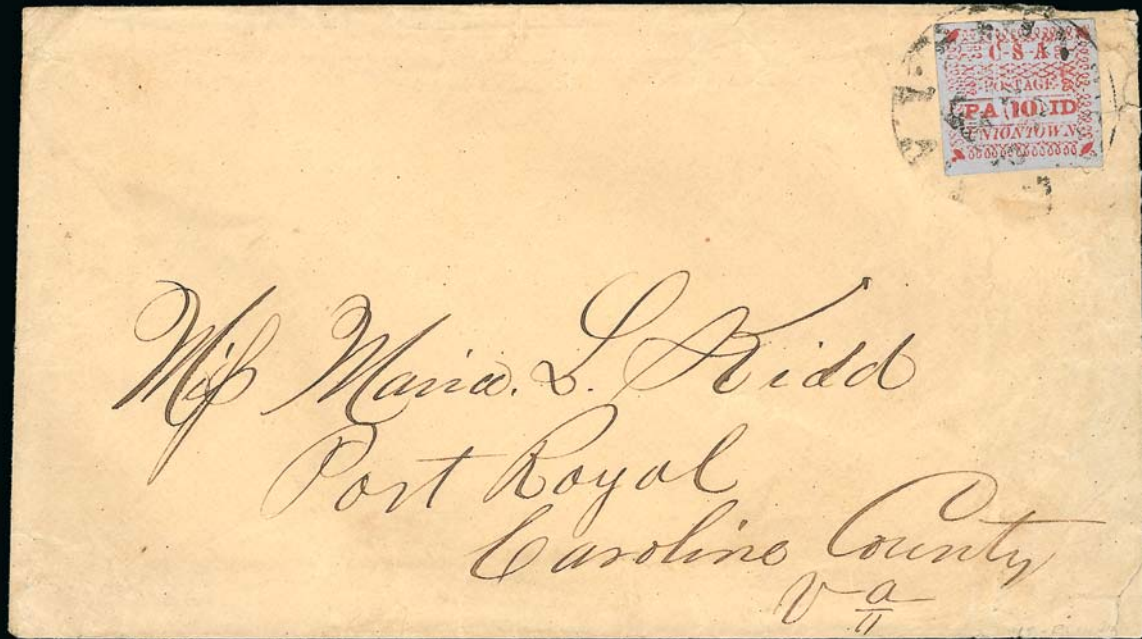 C·S·A
POSTAGE
PA 10 ID
UNIONTOWN
Miſs Maria. L. Kidd
Port Royal
Caroline County
Va